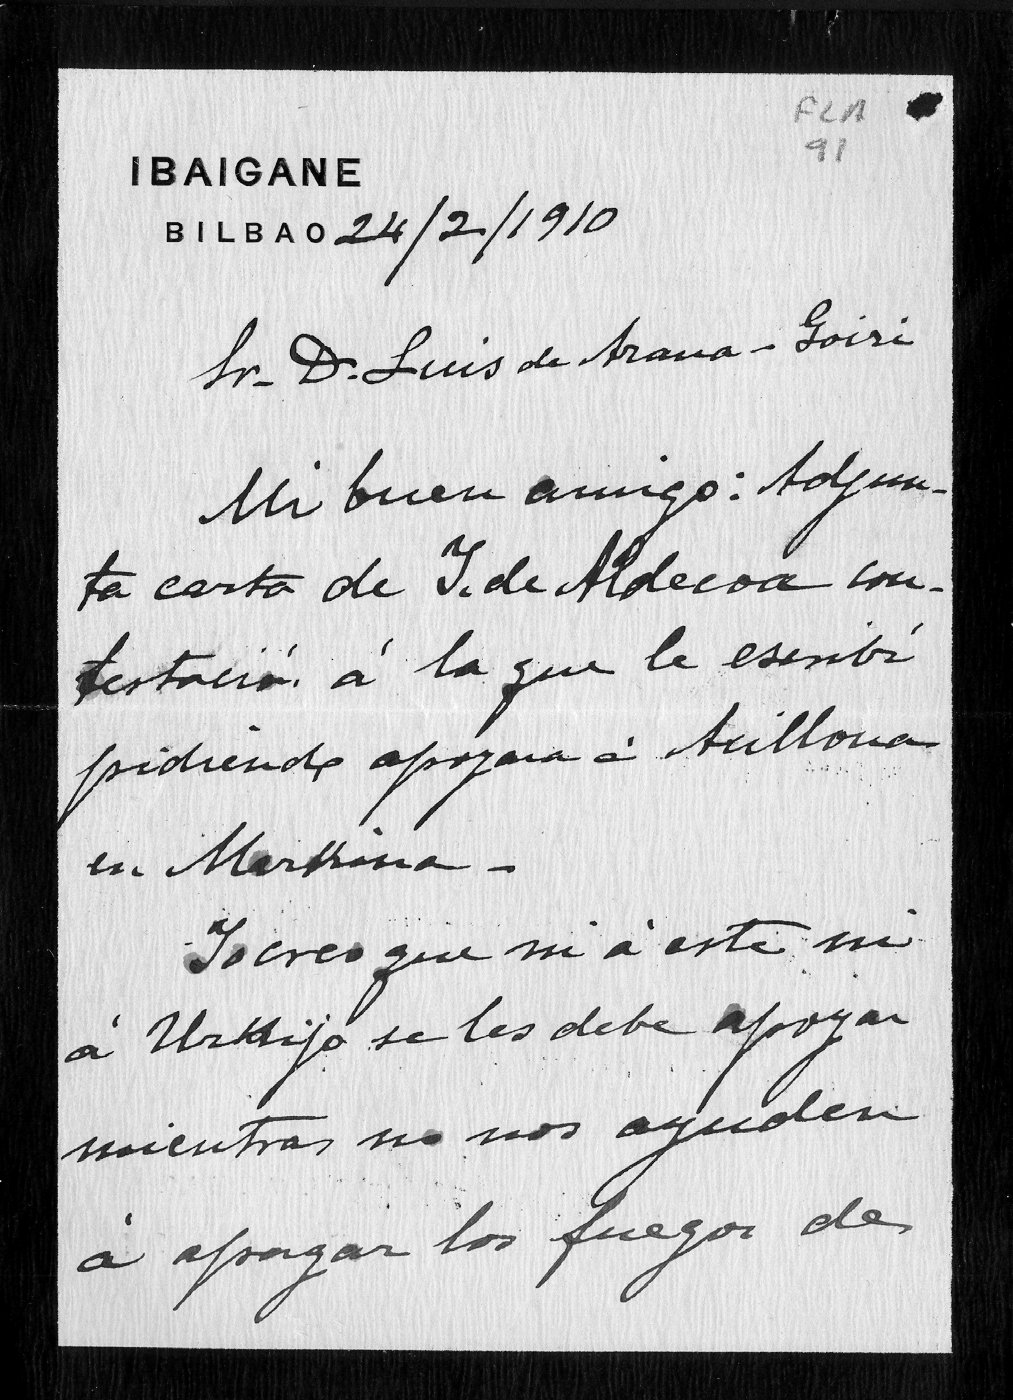 FLA
91
IBAIGANE
BILBAO 24/2/1910
Sr. D. Luis de Arana-Goiri
Mi buen amigo: Adjun-
ta carta de I. de Aldecoa con-
testació. á la que le escribí
pidiendo apoyara á
en Markina -
Yo creo que ni á este ni
á Urkijo se les debe apoyar
mientras no nos ayuden
á apagar los fuegos de